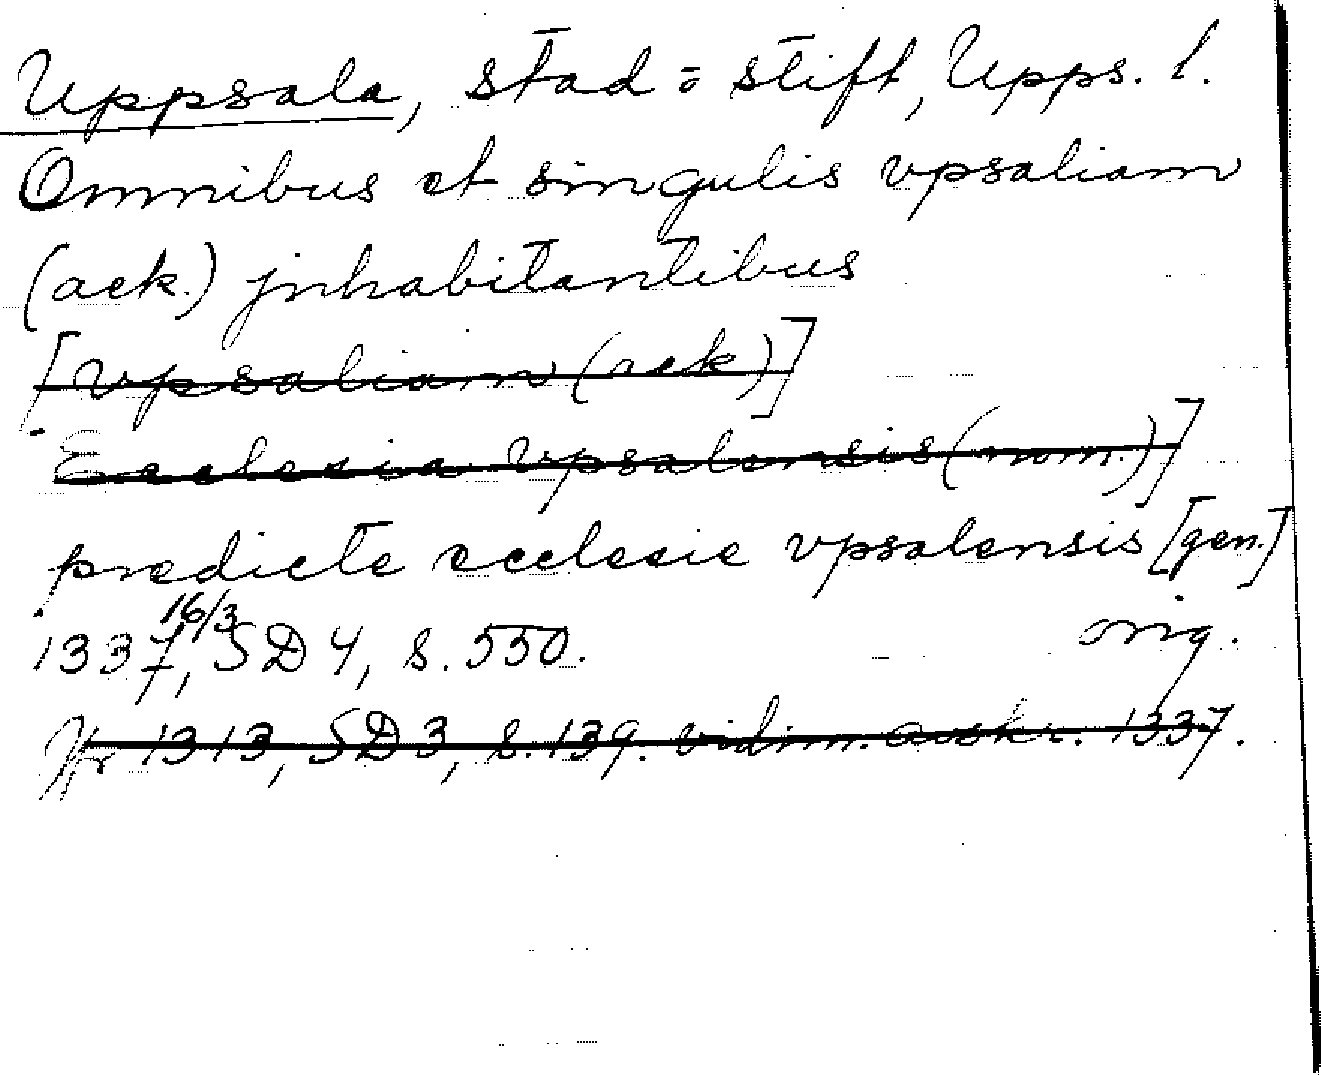 Uppsala, stad o stift, Upps. l.
Omnibus et singulis vpsaliam
(ack.) jnhabitantibus
[vpsaliam (ack)]
Ecclesia vpsalensis (nom.)]
predicte ecclesie vpsalensis [gen.]
16/3
1337, SD 4, s. 550. orig.
Jfr 1313, SD 3, s. 139. vidim. avskr. 1337.